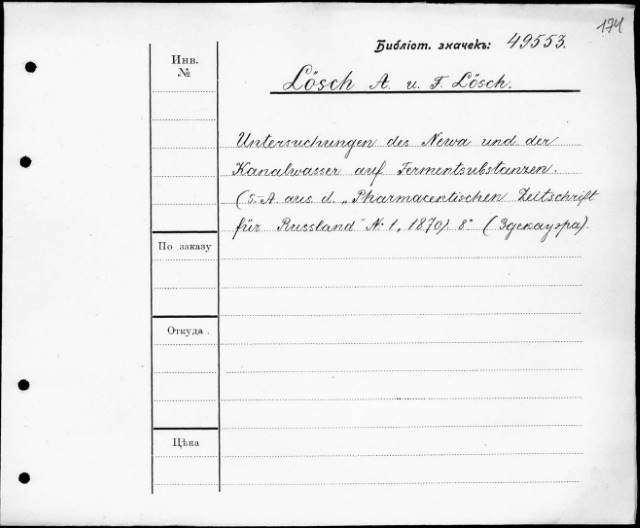 174
Библіот. значекъ: 49553.
Инв.
№
Lösch A. u. F. Lösch.
Untersuchungen des Newa und der
Kanalwasser auf Fermentsubstanzen.
(S.-A. aus d. „Pharmaceutischen Zeitschrift
für Russland" №. 1, 1870). 8° (Здекауэра).
По заказу
Откуда.
Цѣна